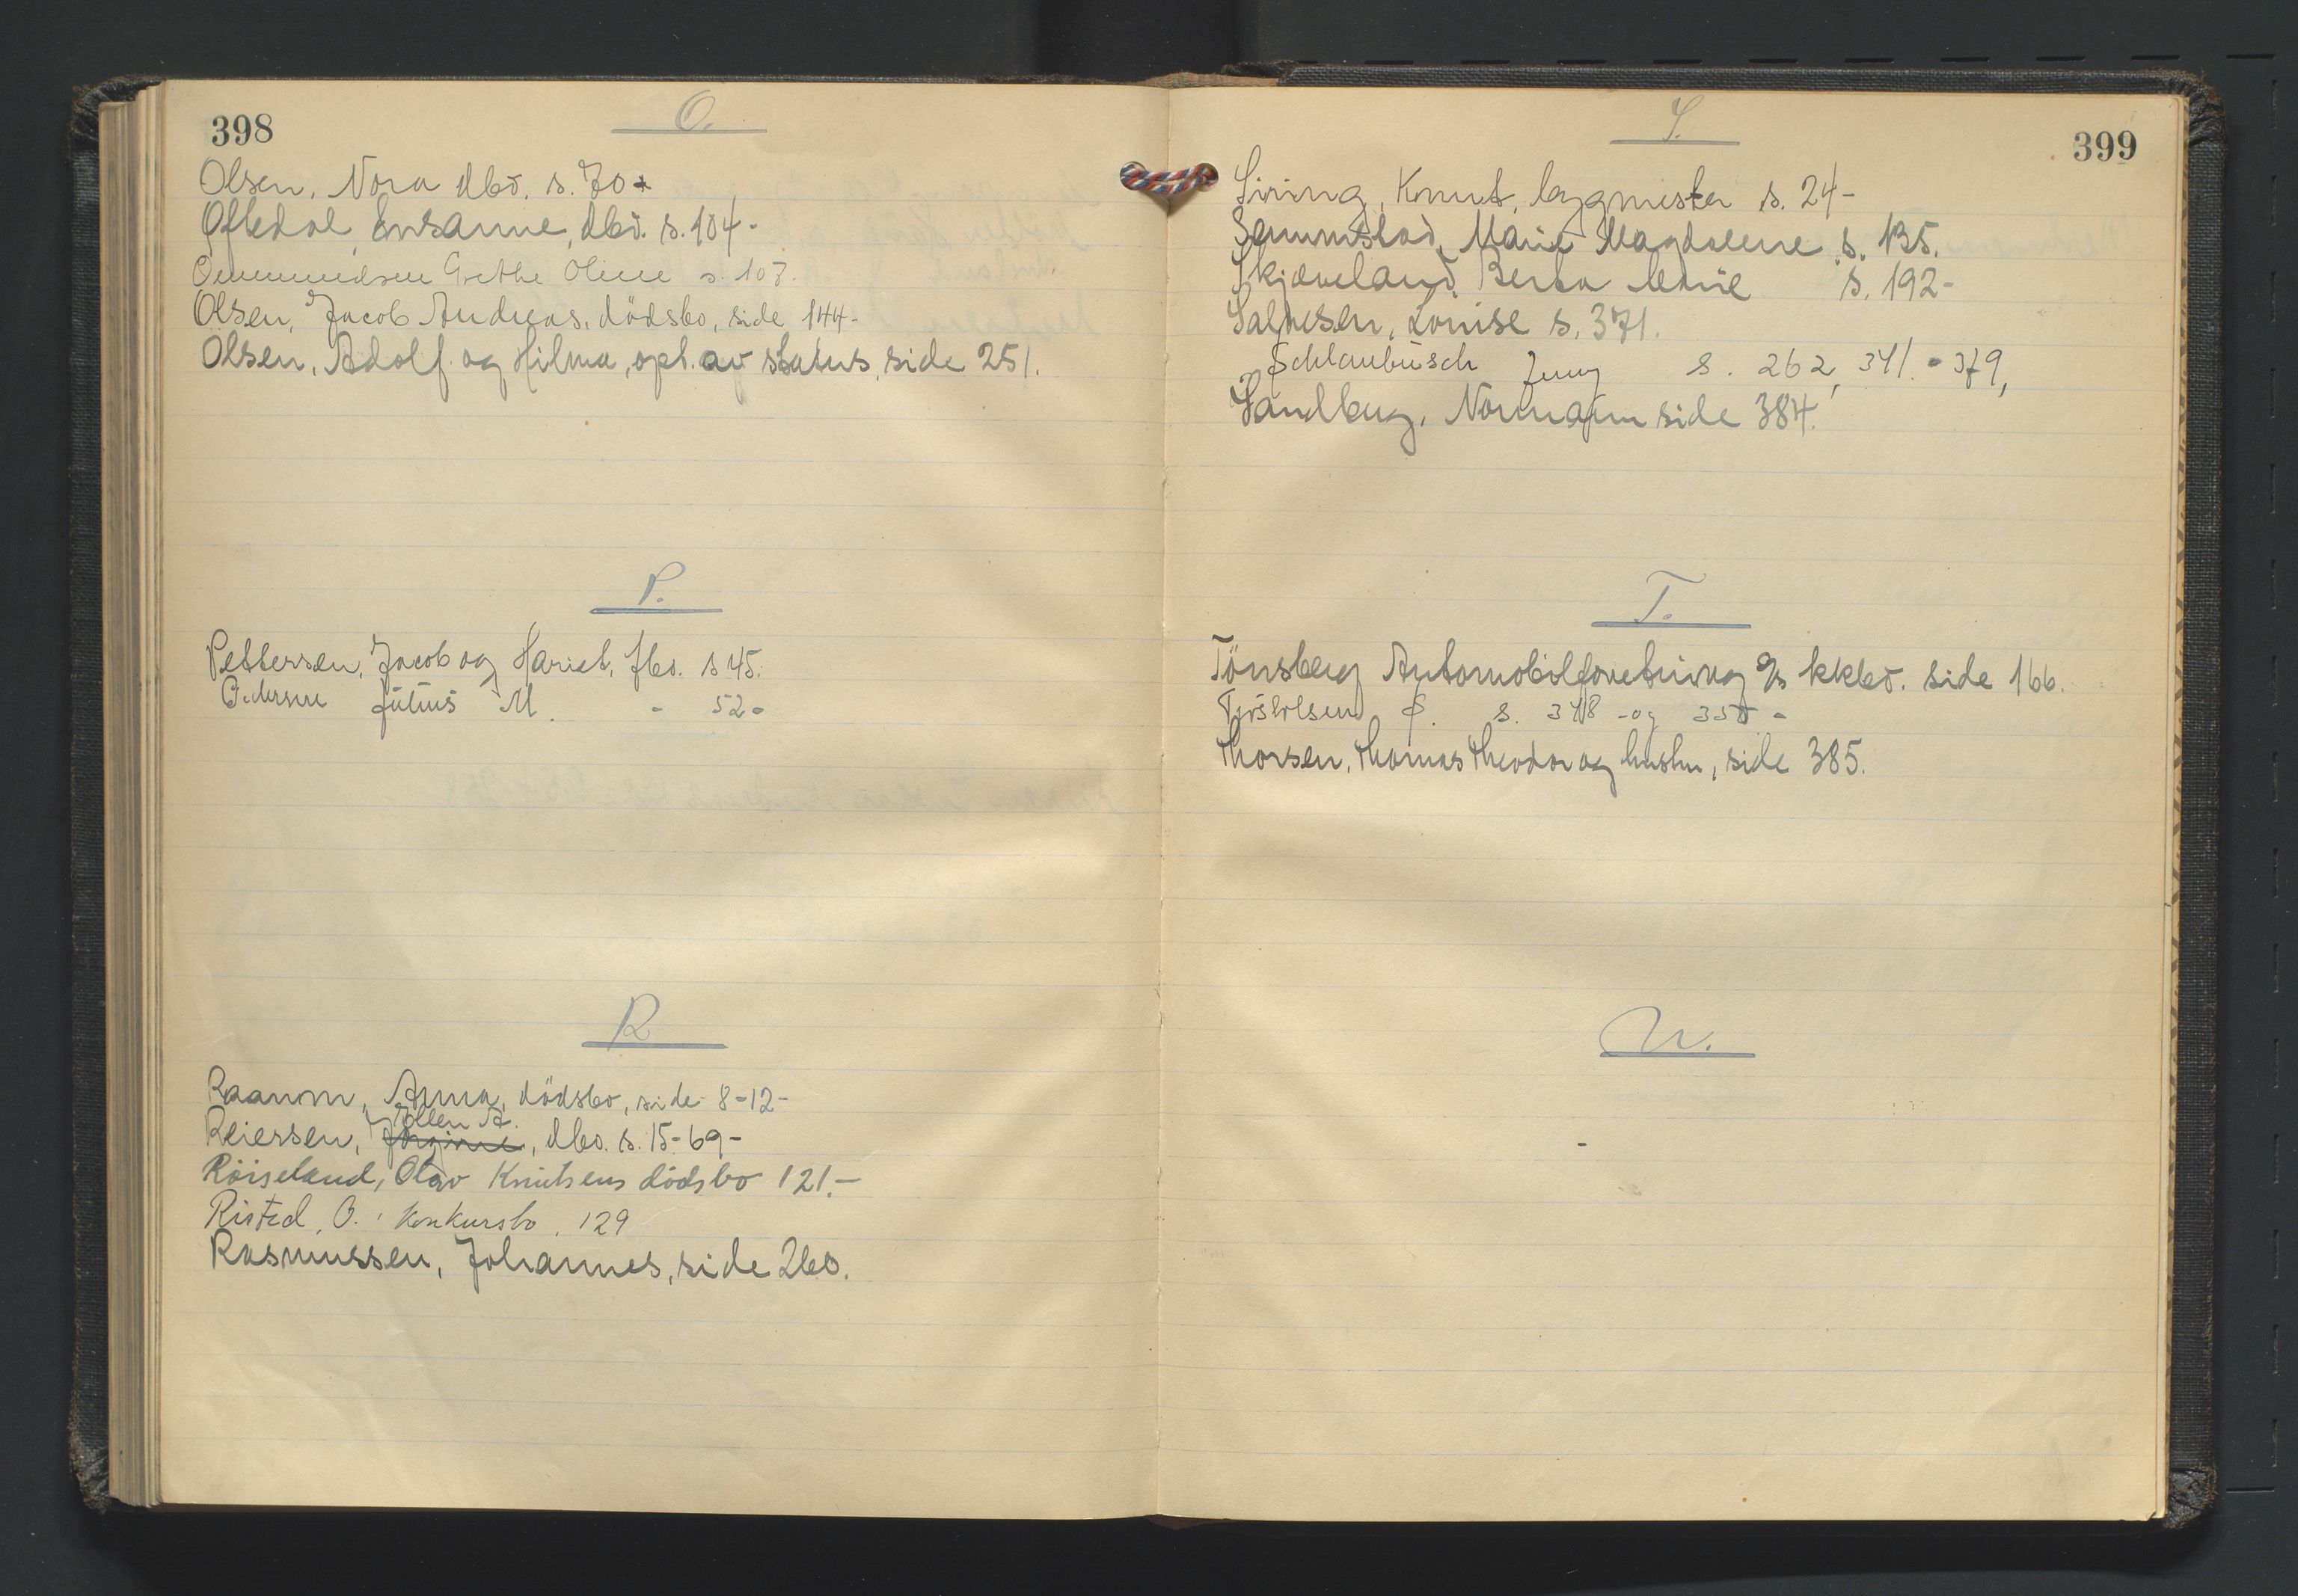 398
O.
Olsen, Nora dbo. s. 70-
Oftedal, Susanne, dbo. s. 104-
Grethe Oline s. 107.
Olsen, Jacob Andreas, dödsbo, side 144-
Olsen, Adolf og Hilma, opl. av status, side 251.
P.
Pettersen, Jacob og Hariet, fbo. s 45.
Pedersen Julius M. - 52-
R
Raanm, Anna, dödsbo, side 8-12-
Tollen A.
Reiersen, Jörgine, dbo. s. 15-69-
Röiseland, Olav Knutsens dödsbo 121.-
Risted, O. konkursbo, 129
Rasmussen, Johannes, side 260.
399
S.
Siring, Knut, bygmester s. 24-
Marie Magdalene s. 135.
Skjæveland, Berta Marie s. 192-
Salvesen, Louise s. 371.
Schlanbusch Jenny s. 262, 341.-379,
Sandberg, Normann side 384.
T.
Tönsberg Automobilforretning A/s kkbo. side 166.
s. 348-og 350-
Thorsen, Thomas Theodor og hustru, side 385.
U.